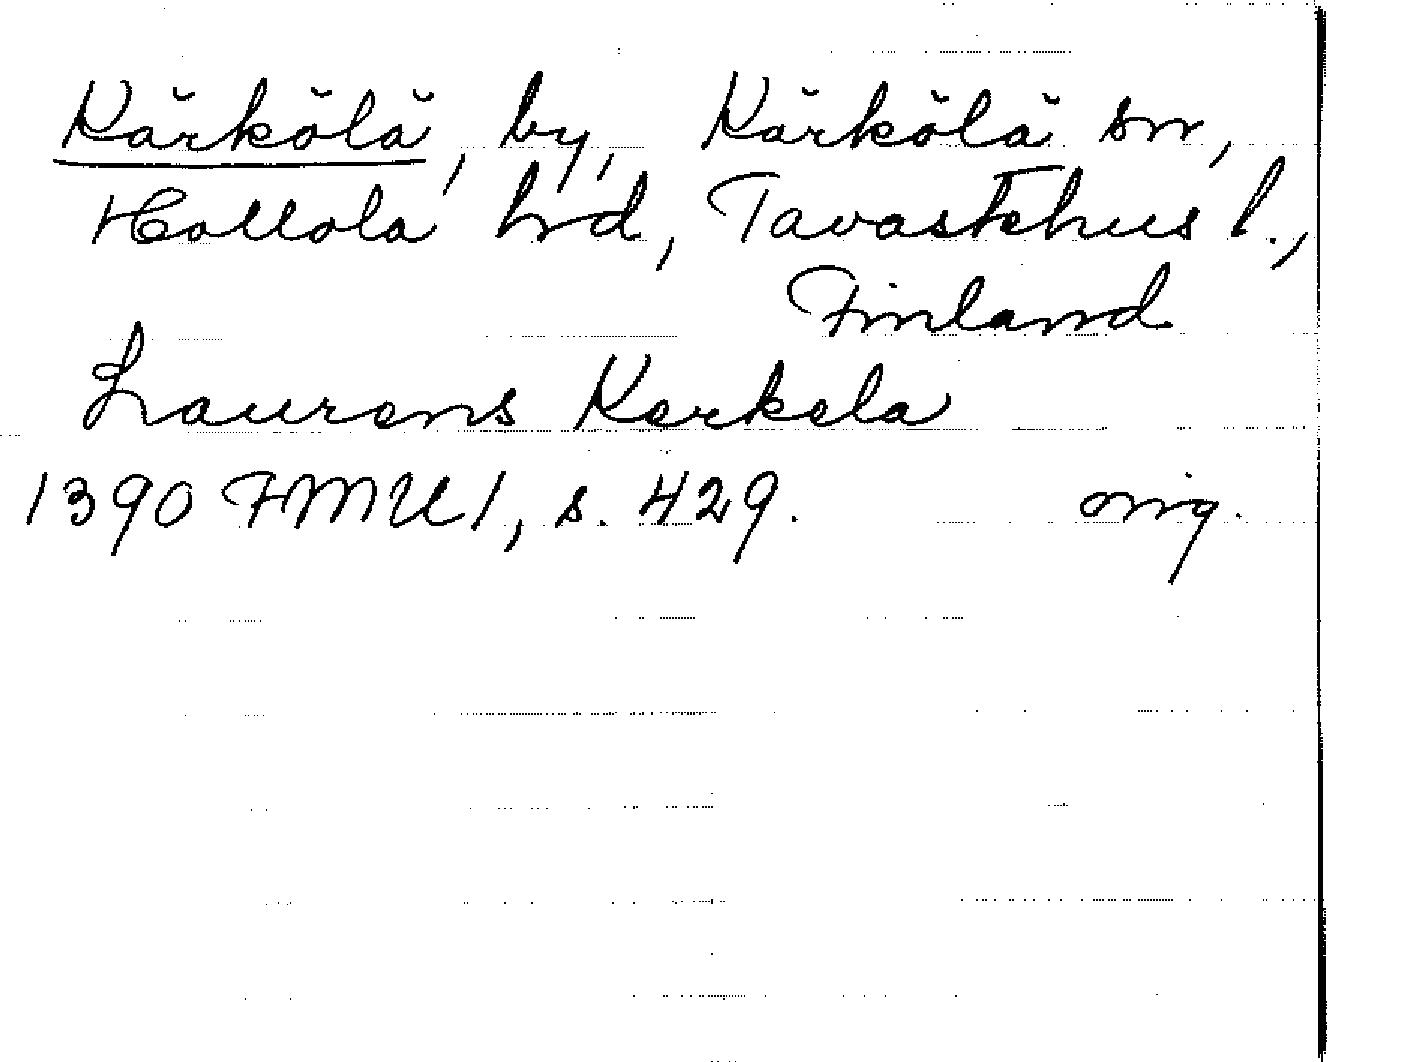 Kärkölä, by, Kärkölä sn,
Hollola hrd, Tavastehus l.,
Finland
Laurens Kerkela
1390 FMU 1, s. 429. orig.